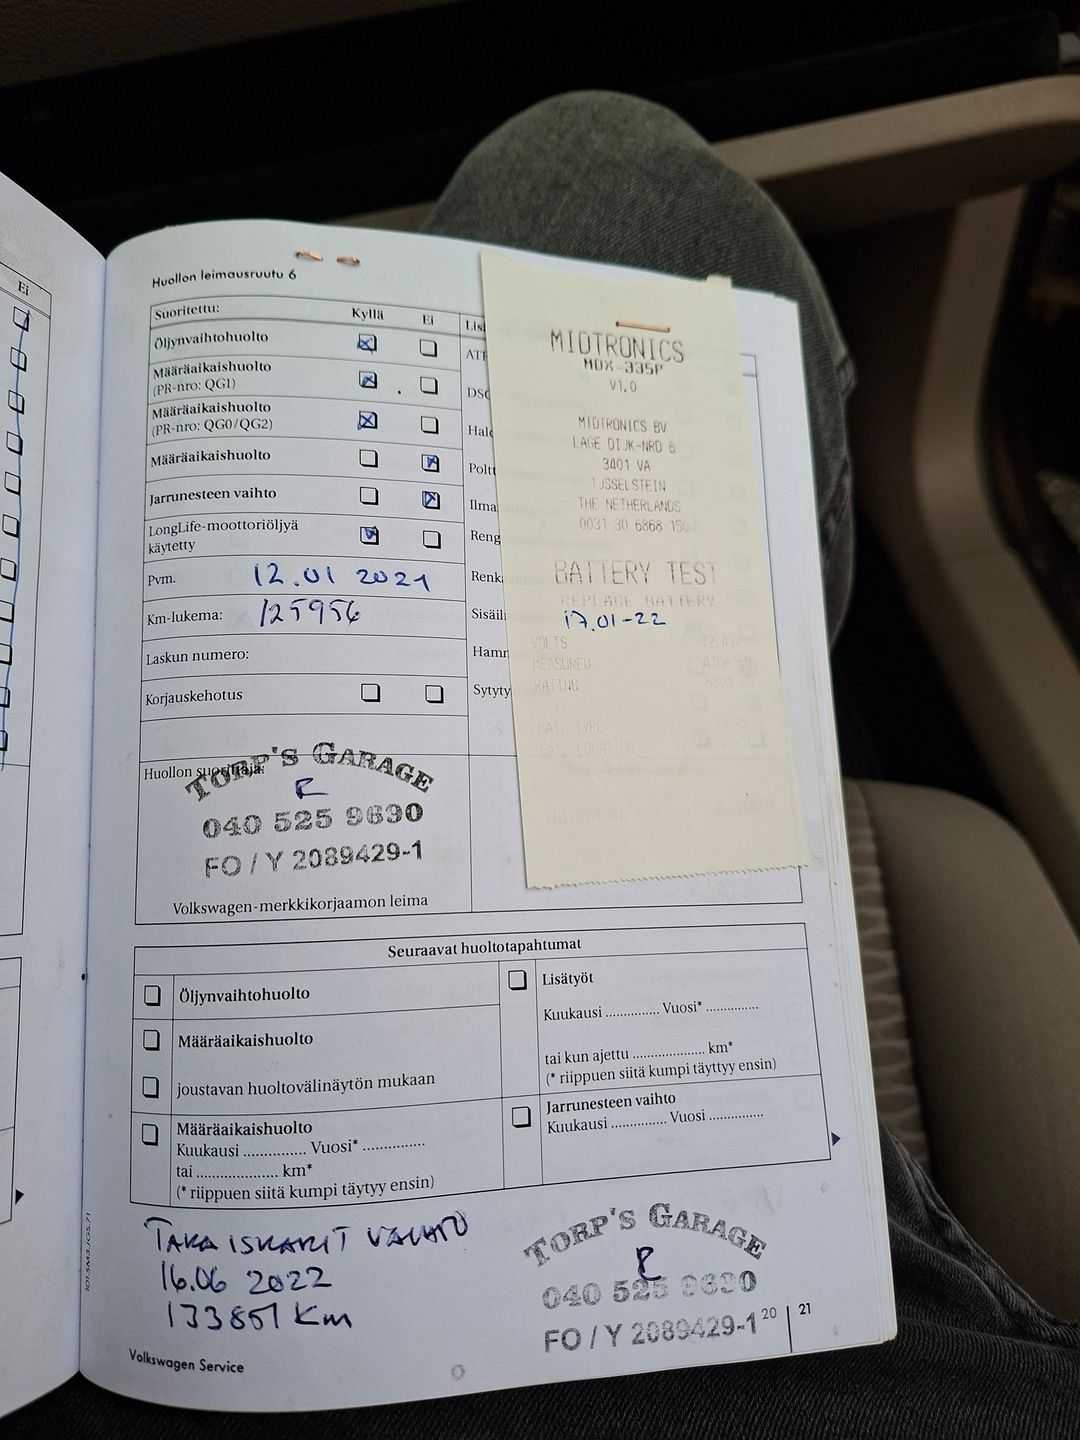 Ei
Huollon leimausruutu 6
Suoritettu: Kyllä Ei
Öljynvaihtohuolto
Määräaikaishuolto
(PR-nro: QG1)
Määräaikaishuolto
(PR-nro: QG0/QG2)
Määräaikaishuolto
Jarrunesteen vaihto
LongLife-moottoriöljyä
käytetty
Pvm. 12.01 2021
Km-lukema: 125956
Laskun numero:
Korjauskehotus
Huollon suorittaja:
TORP'S GARAGE
040 525 9690
FO / Y 2089429-1
Volkswagen-merkkikorjaamon leima
DSG
Ilma
Reng
Renk
Sisäil
Hamm
Sytyty
MIDTRONICS
MDX-335P
V1.0
MIDTRONICS BV
LAGE DIJK-NRD 6
3401 VA
IJSSELSTEIN
THE NETHERLANDS
0031 30 6868 150
BATTERY TEST
REPLACE BATTERY
17.01-22
VOLTS
MEASURED
RATING
BAT. TYPE
BAT. LOCATION
Seuraavat huoltotapahtumat
Öljynvaihtohuolto
Määräaikaishuolto
joustavan huoltovälinäytön mukaan
Määräaikaishuolto
Kuukausi ............... Vuosi* ...............
tai .................... km*
(* riippuen siitä kumpi täytyy ensin)
Lisätyöt
Kuukausi ............. Vuosi* .............
tai kun ajettu .................. km*
(* riippuen siitä kumpi täyttyy ensin)
Jarrunesteen vaihto
Kuukausi ............. Vuosi .............
TAKA ISKARIT VAIHTO
16.06 2022
133851 Km
TORP'S GARAGE
040 525 9690
FO / Y 2089429-1
20 | 21
Volkswagen Service